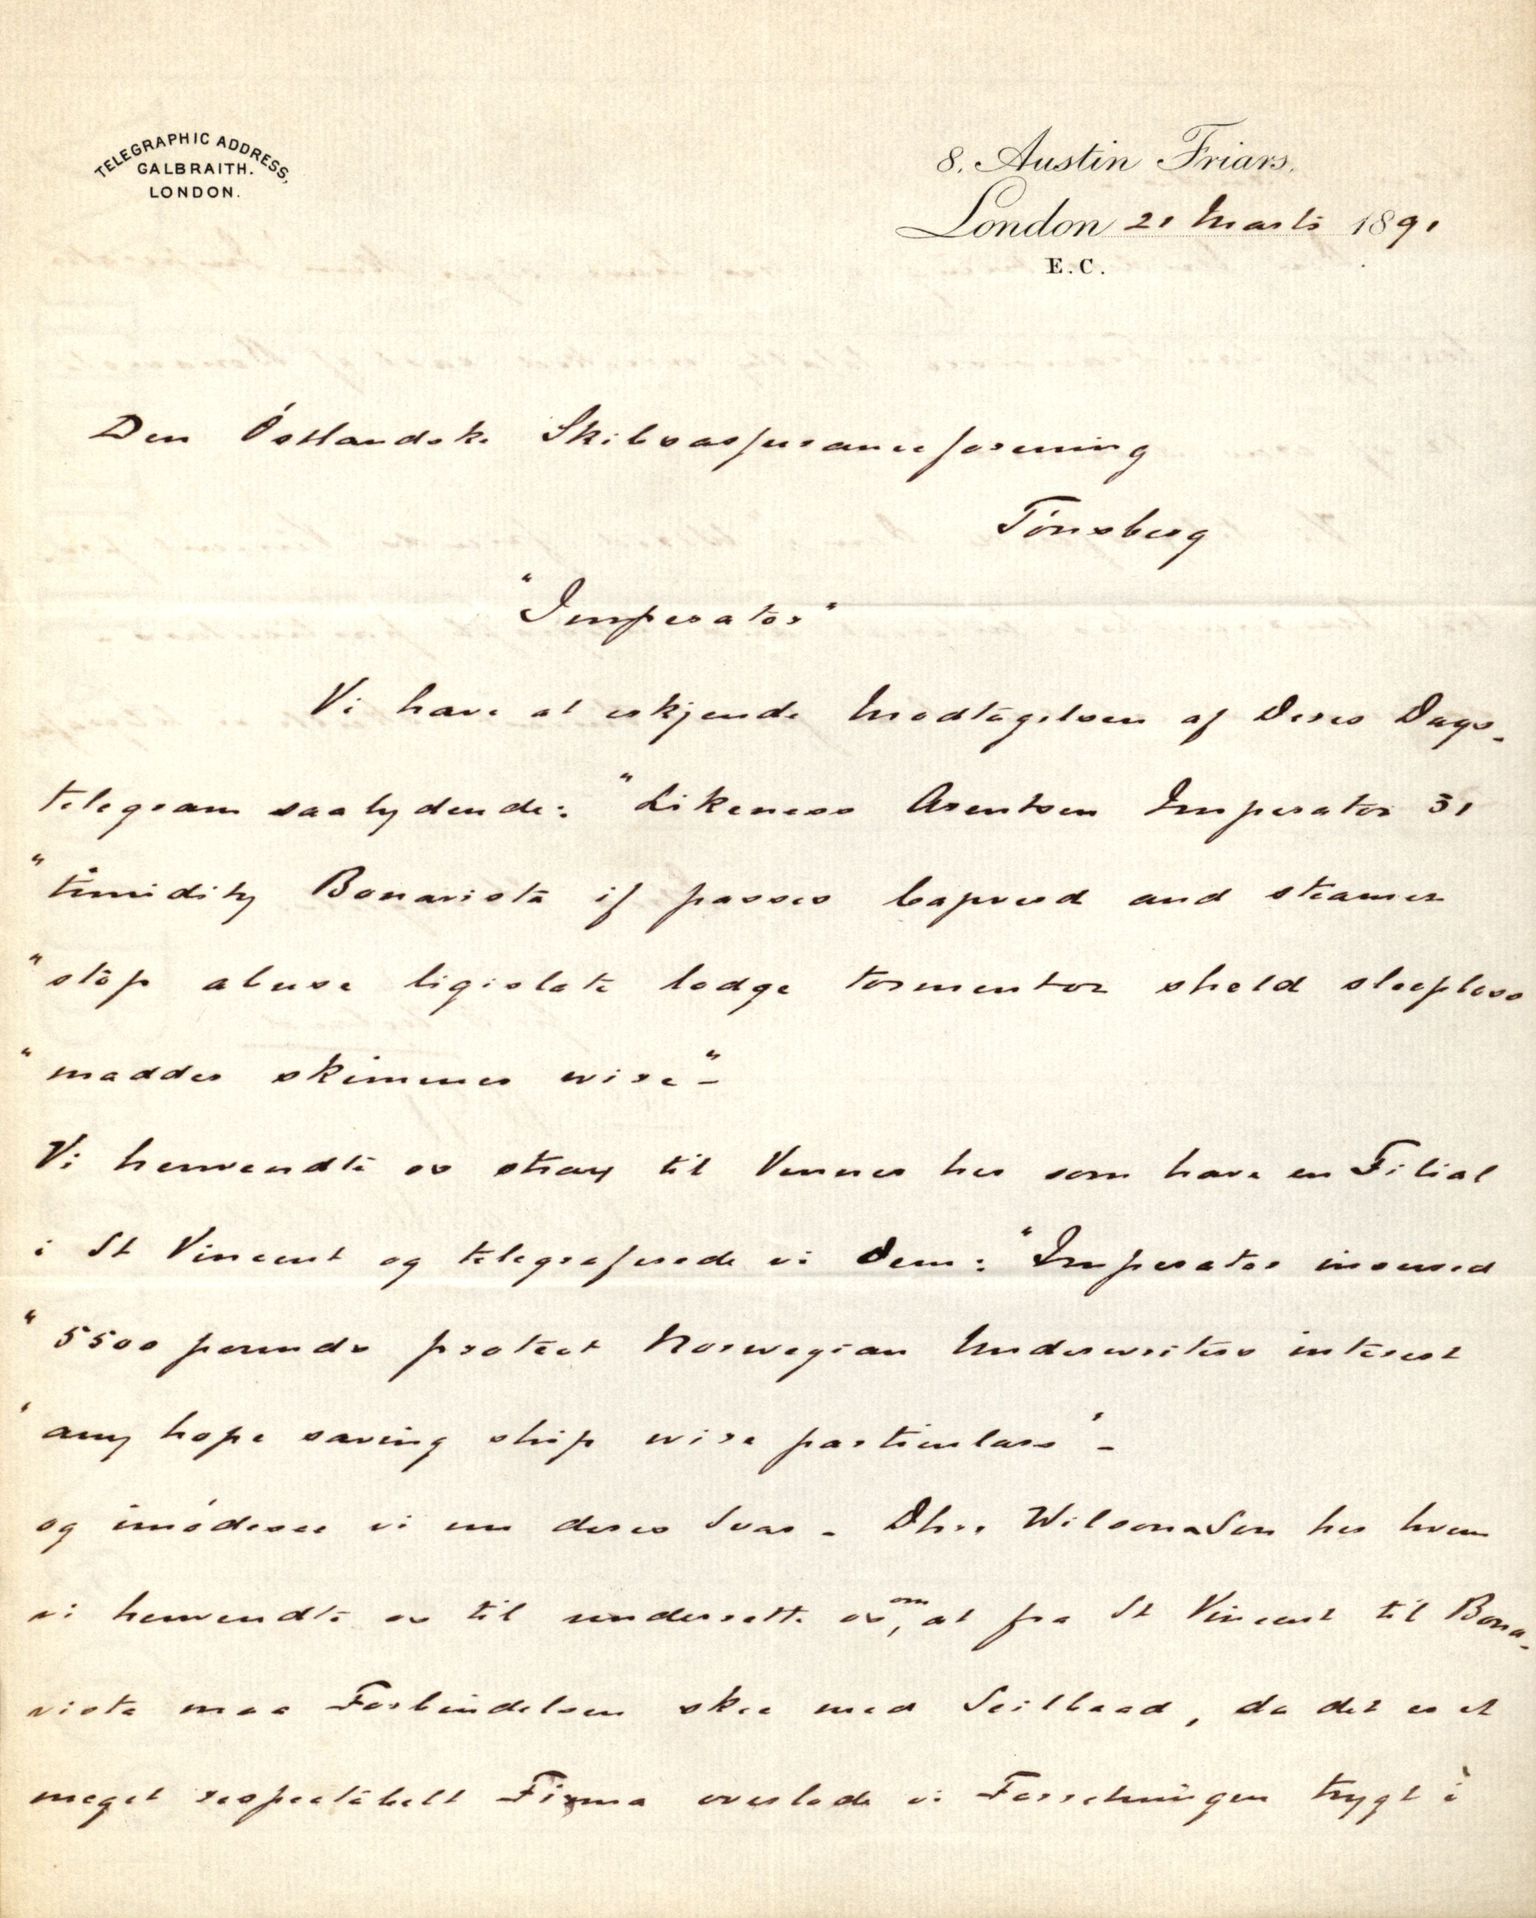 TELEGRAPHIC ADDRESS,
GALBRAITH.
LONDON.
8. Austin Friars.
London 21 Marts 1891
E.C.
Den Östlandske Skibsassuranceforening
Tönsberg
"Imperator"
Vi have at erkjende Modtagelsen af Deres Dags-
telegram saalydende: "Likeness Arentsen Imperator 31
"timidity Bonavista if passes Capverd and steamer
"stop abuse ligislate lodge tormentor sheld sleepless
"madder skimmer wire"-
Vi henvendte os strax til Venner her som have en Filial
i St Vincent og telegraferede vi dem: "Imperator insured
"5500 pounds protect Norwegian Underwriters interest
'any hope saving ship wire particulars'-
og imödesee vi nu deres Svar - Dhrr Wilson Son her hvem
vi henvendte os til underrette os om, at fra St Vincent til Bona-
vista maa Forbindelsen skee med Seilbaad, da det er et
meget respectabelt Firma overlode vi Forretningen trygt i